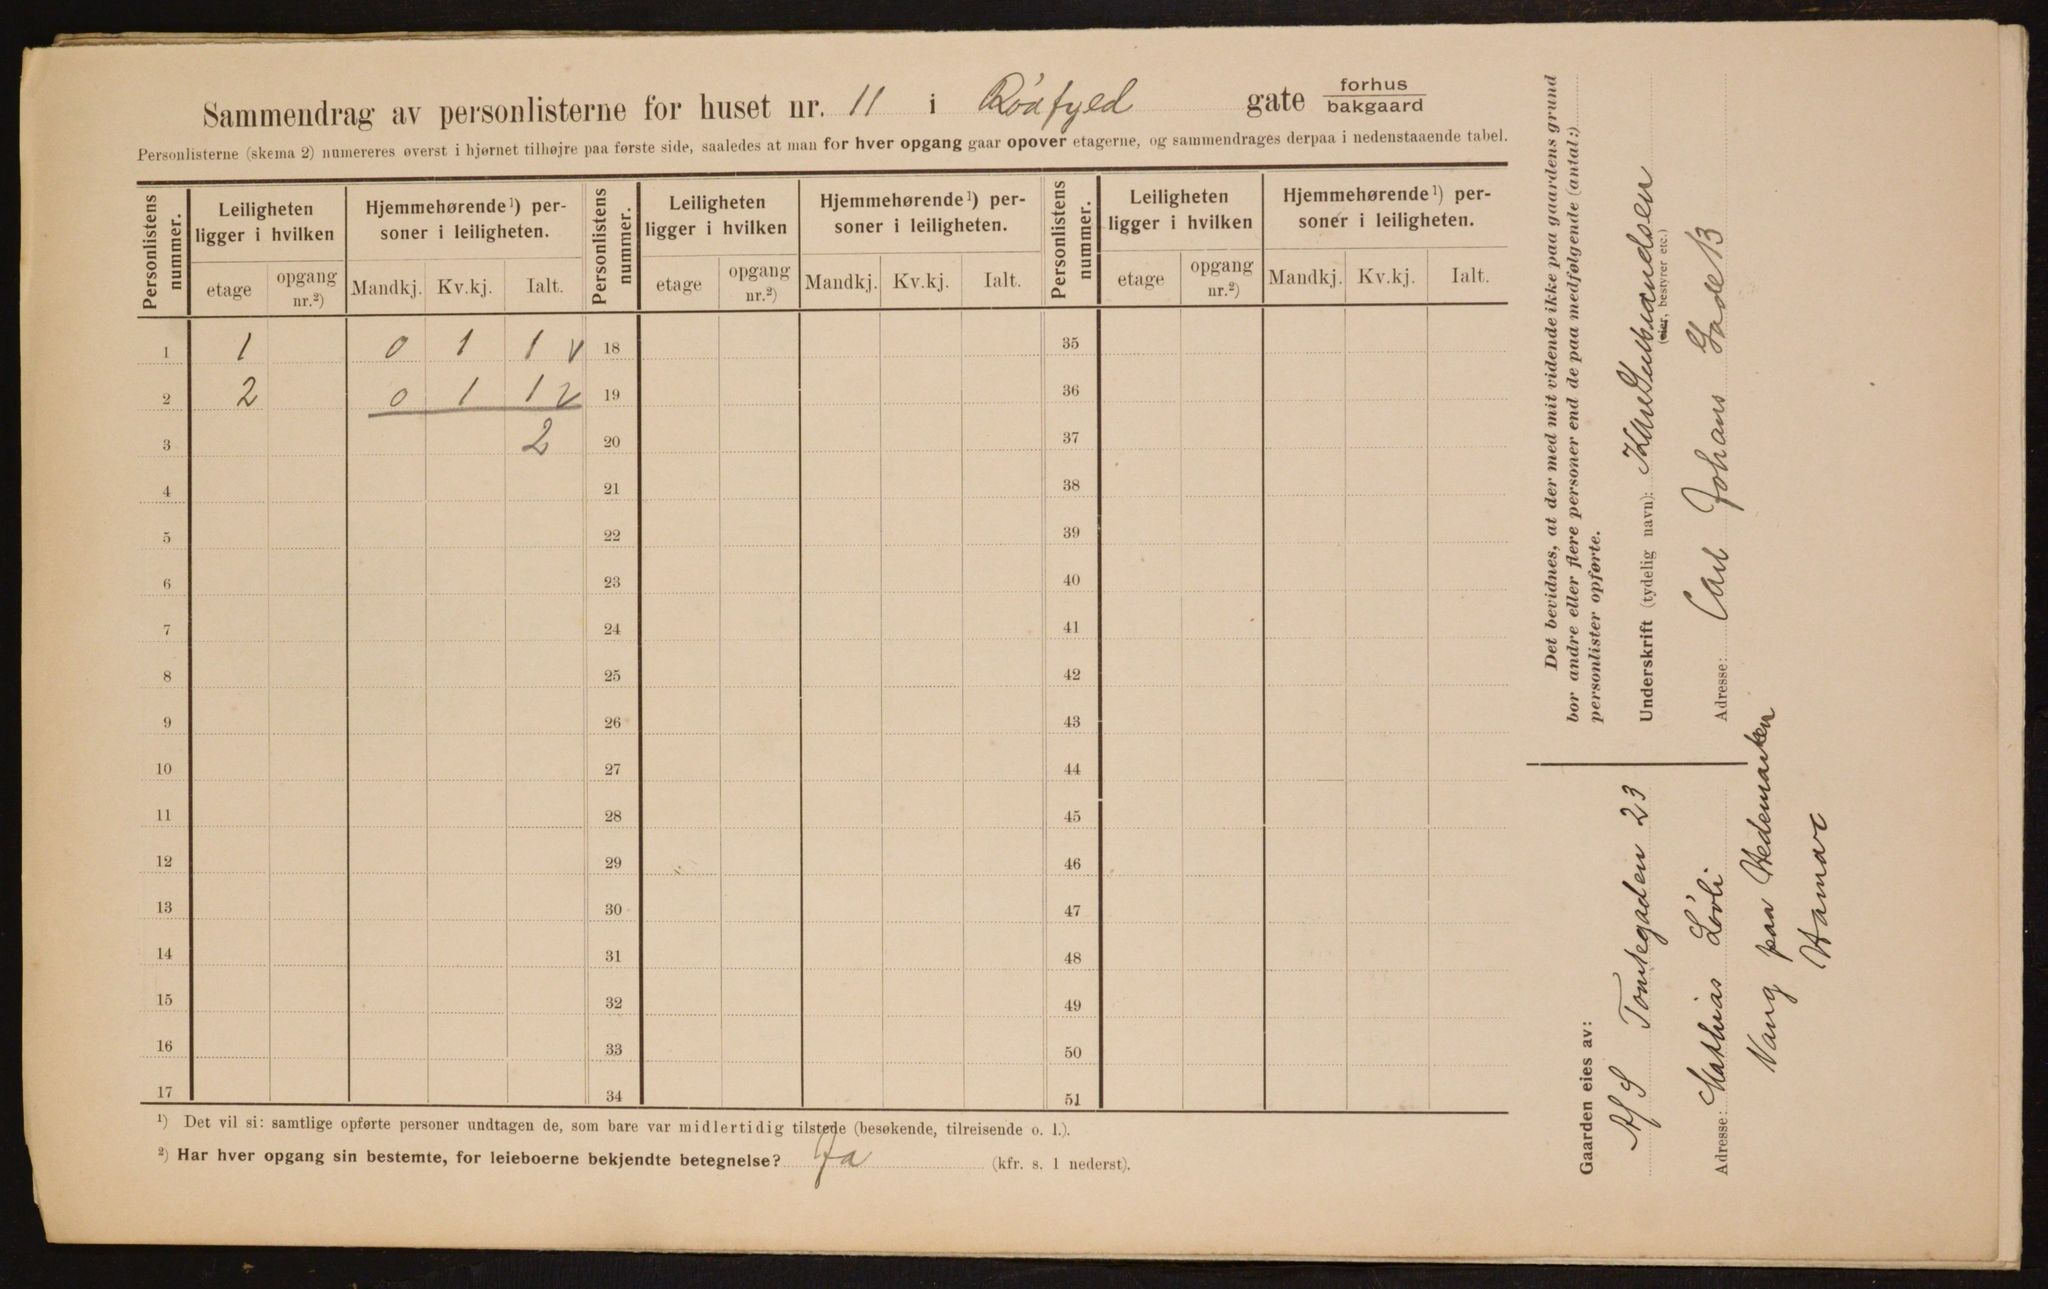 Sammendrag av personlisterne for huset nr. 11 i Rödfyld gate forhus / bakgaard
Personlisterne (skema 2) numereres øverst i hjørnet tilhøjre paa første side, saaledes at man for hver opgang gaar opover etagerne, og sammendrages derpaa i nedenstaaende tabel.
Personlistens nummer. Leiligheten ligger i hvilken Hjemmehørende ¹) personer i leiligheten. Personlistens nummer. Leiligheten ligger i hvilken Hjemmehørende ¹) personer i leiligheten. Personlistens nummer. Leiligheten ligger i hvilken Hjemmehørende ¹) personer i leiligheten.
etage opgang nr.²) Mandkj. Kv.kj. Ialt. etage opgang nr.²) Mandkj. Kv.kj. Ialt. etage opgang nr.²) Mandkj. Kv.kj. Ialt.
1 1 0 1 1 v 18 35
2 2 0 1 1 v 19 36
3 2 20 37
4 21 38
5 22 39
6 23 40
7 24 41
8 25 42
9 26 43
10 27 44
11 28 45
12 29 46
13 30 47
14 31 48
15 32 49
16 33 50
17 34 51
¹) Det vil si: samtlige opførte personer undtagen de, som bare var midlertidig tilstede (besøkende, tilreisende o. l.).
²) Har hver opgang sin bestemte, for leieboerne bekjendte betegnelse? Ja (kfr. s. 1 nederst).
Det bevidnes, at der med mit vidende ikke paa gaardens grund
bor andre eller flere personer end de paa medfølgende (antal:)
personlister opførte.
Underskrift (tydelig navn): Gulbrandsen
(eier, bestyrer etc.)
Adresse: Carl Johans Gade 13
Gaarden eies av:
A/S Tomtegaden 23
Adresse: Mathias Lövli
Vang paa Hedemarken
Hamar